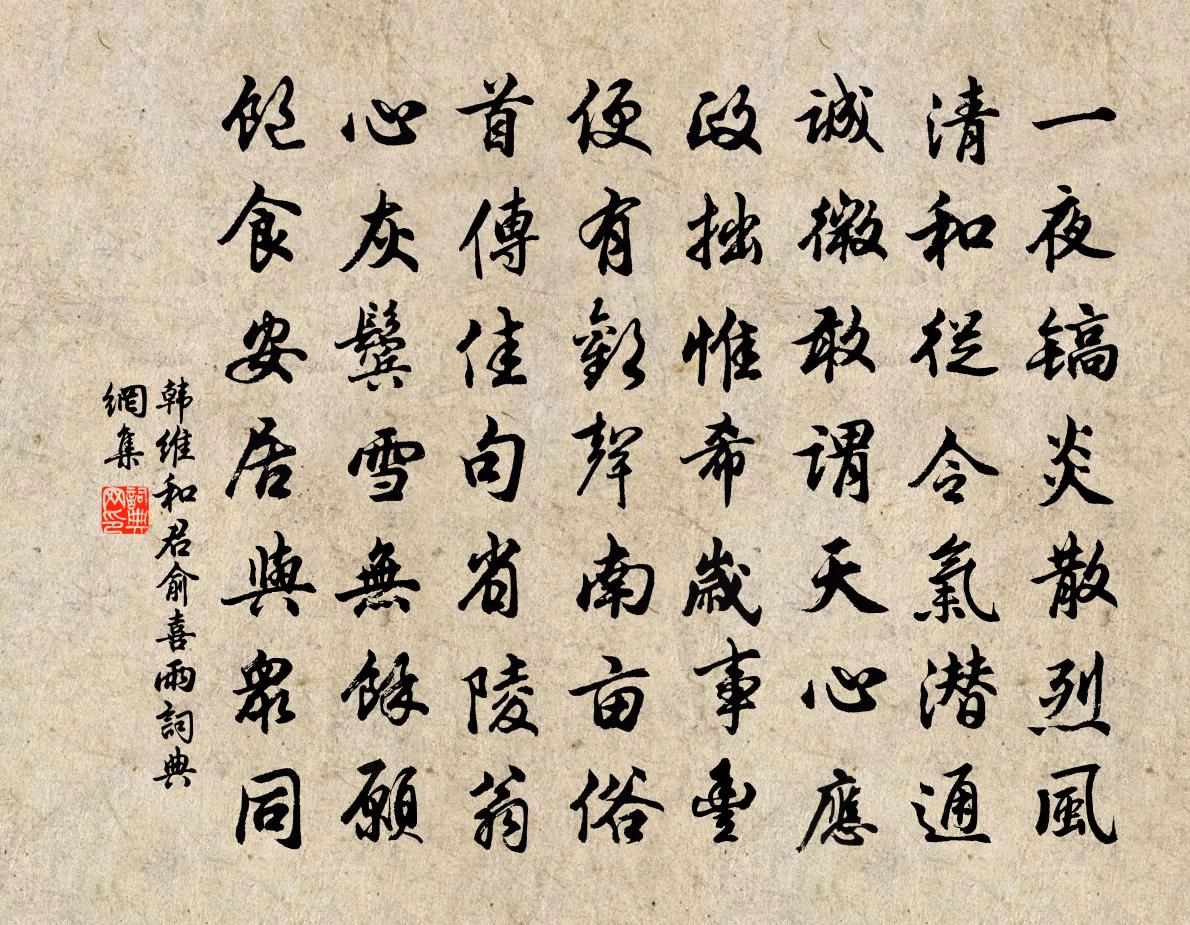 一夜镐炎散烈風
清和從令氣潜通
誠微敢謂天心應
政拙惟希歲事豐
便有歡聲南亩俗
首傳佳句省陵翁
心灰鬓雪無餘願
飽食安居與衆同
韩維和君俞喜雨詞典
網集
詞典
网印